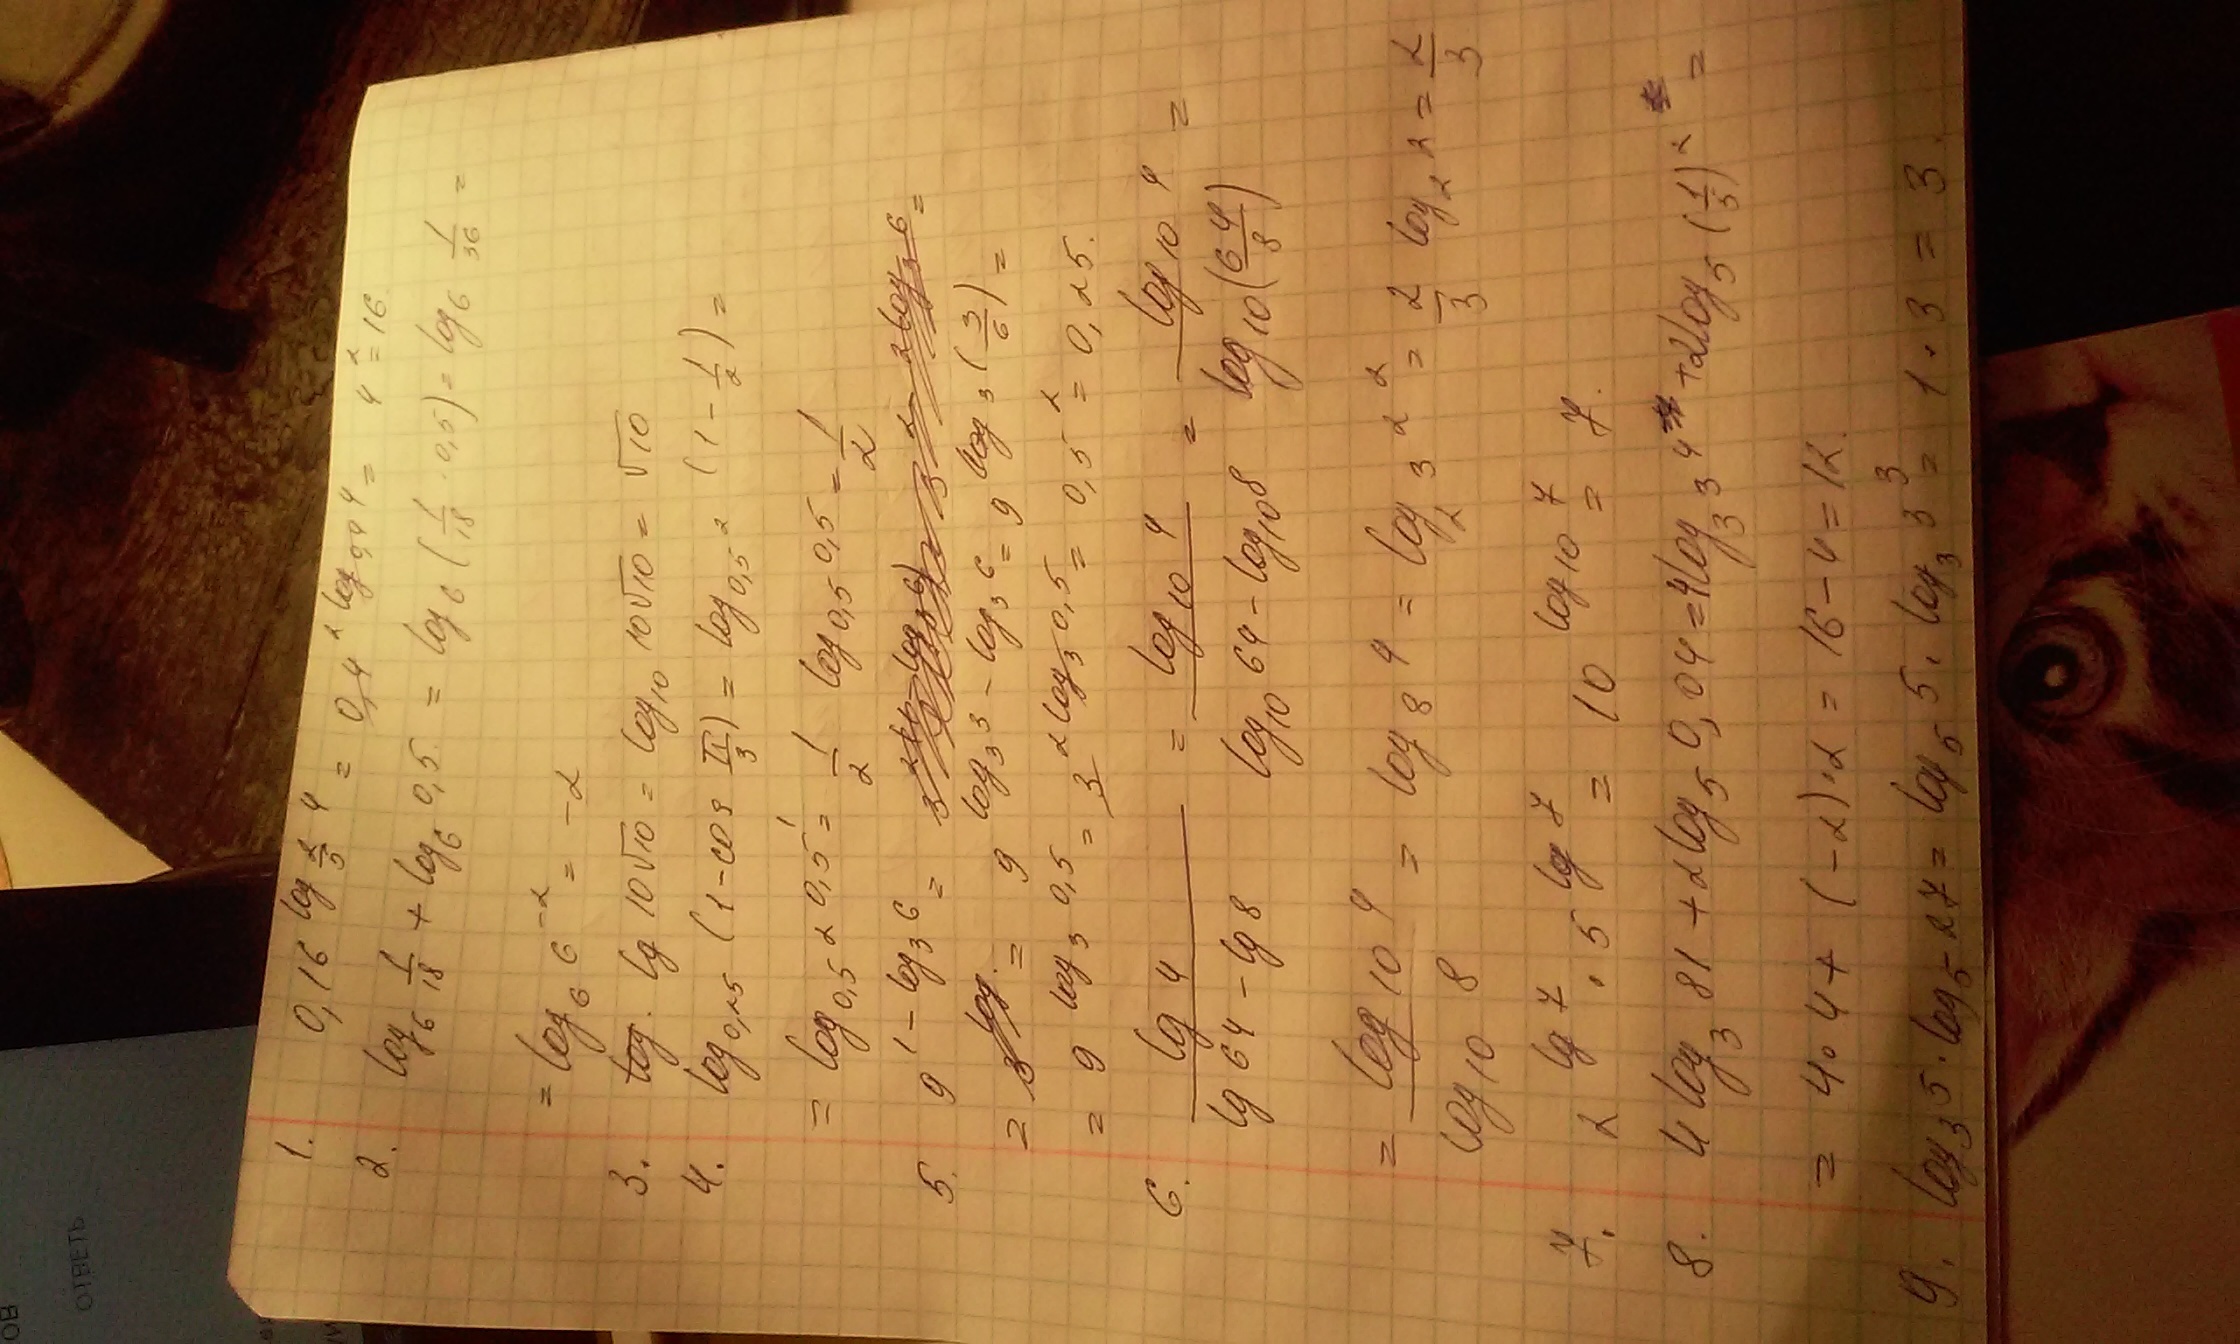 1. 0,16 log 2/5 4 = 0,4^2 log 0,4 4 = 4^2 = 16.
2. log_6 1/18 + log_6 0,5 = log_6 (1/18 · 0,5) = log_6 1/36 =
= log_6 6^-2 = -2
3. lg 10√10 = log_10 10√10 = √10
4. log_0,25 (1 - cos π/3) = log_0,5^2 (1 - 1/2) =
= log_0,5^2 0,5^1 = 1/2 log_0,5 0,5 = 1/2
5. 9^(1 - log_3 6) =
= 9^(log_3 3 - log_3 6) = 9^(log_3 (3/6)) =
= 9^(log_3 0,5) = 3^(2 log_3 0,5) = 0,5^2 = 0,25.
6. lg 4 / (lg 64 - lg 8) = log_10 4 / (log_10 64 - log_10 8) = log_10 4 / log_10 (64/8) =
= log_10 4 / log_10 8 = log_8 4 = log_2^3 2^2 = 2/3 log_2 2 = 2/3
7. 2^(lg 7) · 5^(lg 7) = 10^(log_10 7) = 7.
8. 4 log_3 81 + 2 log_5 0,04 = 4 log_3 3^4 + 2 log_5 (1/5)^2 =
= 4·4 + (-2)·2 = 16 - 4 = 12.
9. log_3 5 · log_5 27 = log_5 5 · log_3 3^3 = 1·3 = 3.
ОВ
ОТВЕТЬ